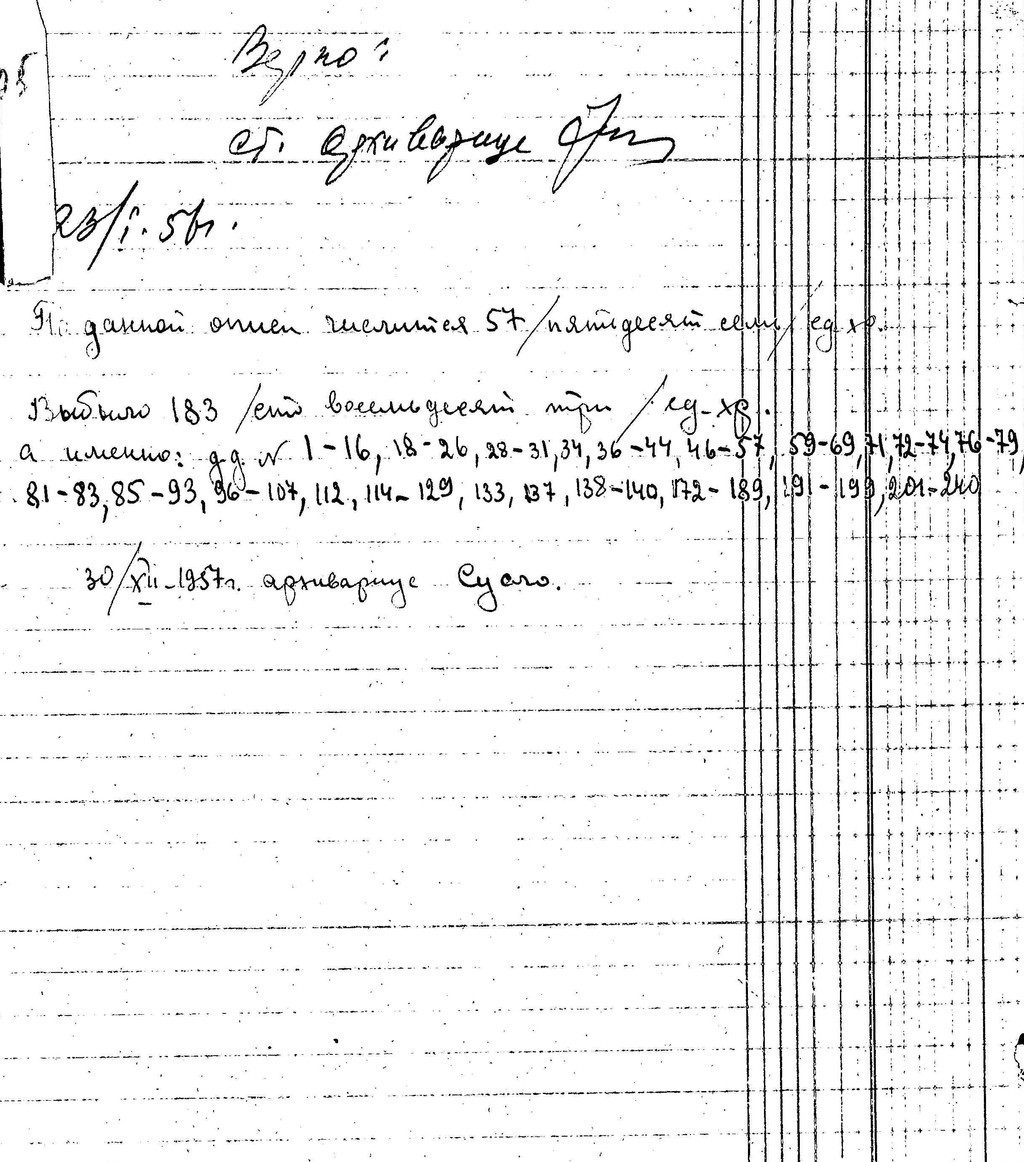 Верно:
ст. архивариус
23/I. 56г.
По данной описи числится 57 /пятьдесят семь/ ед. хр.
Выбыло 183 /сто восемьдесят три/ ед-хр.
а именно: д.д. № 1-16, 18-26, 28-31, 34, 36-44, 46-57, 59-69, 71, 72-74, 76-79,
81-83, 85-93, 96-107, 112, 114-129, 133, 137, 138-140, 172-189, 191-199, 201-240
30/XII-1957г. архивариус Сусло.